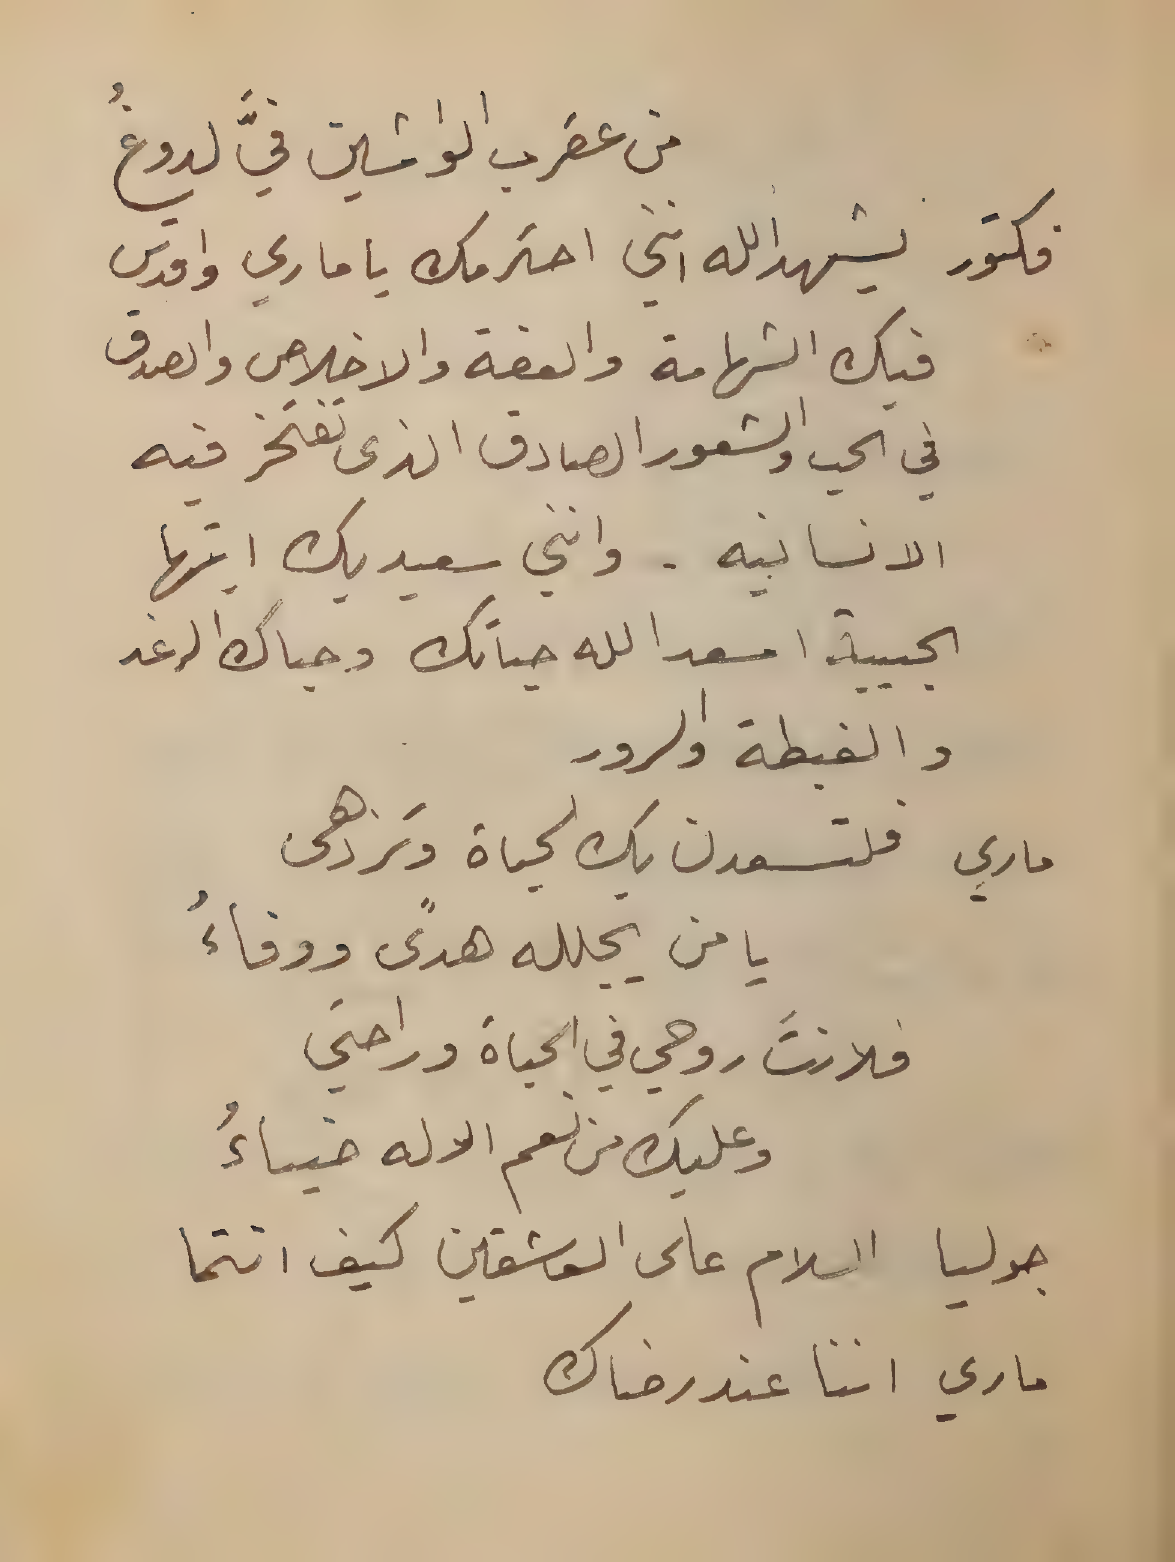 من عقرب الواشين فيَّ لدوغُ
فكتور يشهد الله انني احترمك يا ماري واقدس
فيك الشهامة والعفة والاخلاص والصدق
في الحب والشعور الصادق الذى تفتخر فيه
الانسانيه . وانني سعيد بك ايتها
الحبيبة اسعد الله حياتك وحباك الرغد
والغبطة والسرور
ماري فلتسعدن بك الحياة وتزدهى
يا من يجلله هدًى ووفاءُ
فلانتَ روحي في الحياة وراحتي
وعليك من نعم الاله ضياءُ
جوليا السلام على العاشقين كيف انتما
ماري اننا عند رضاك